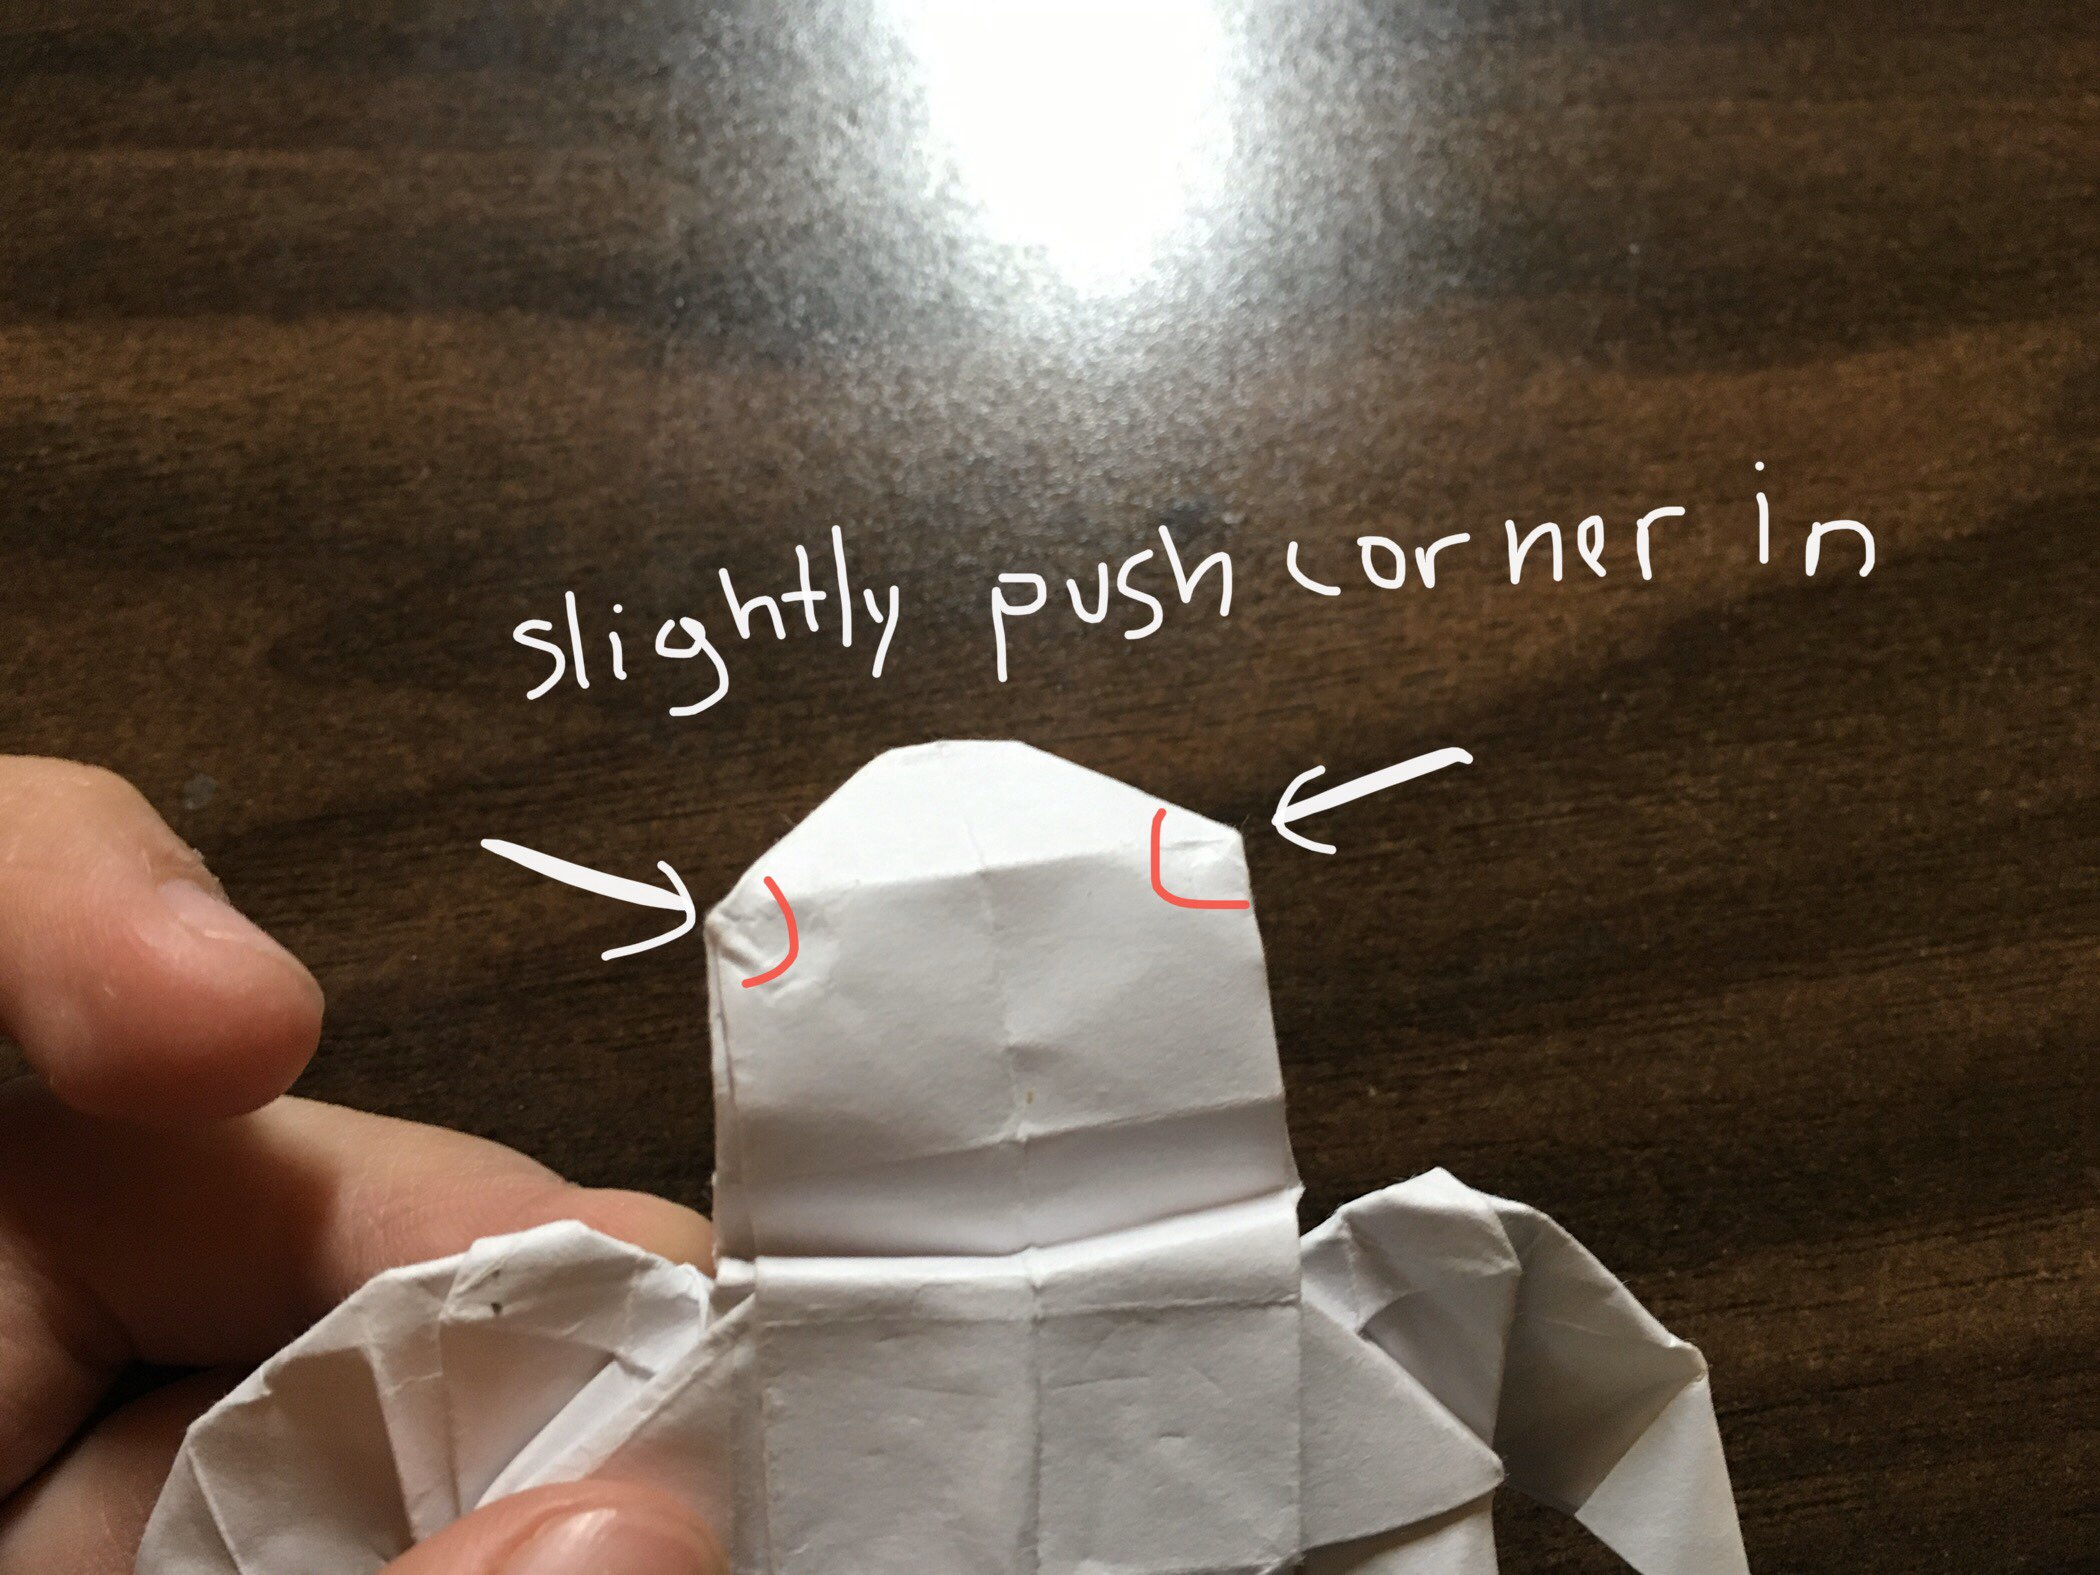 slightly push corner in